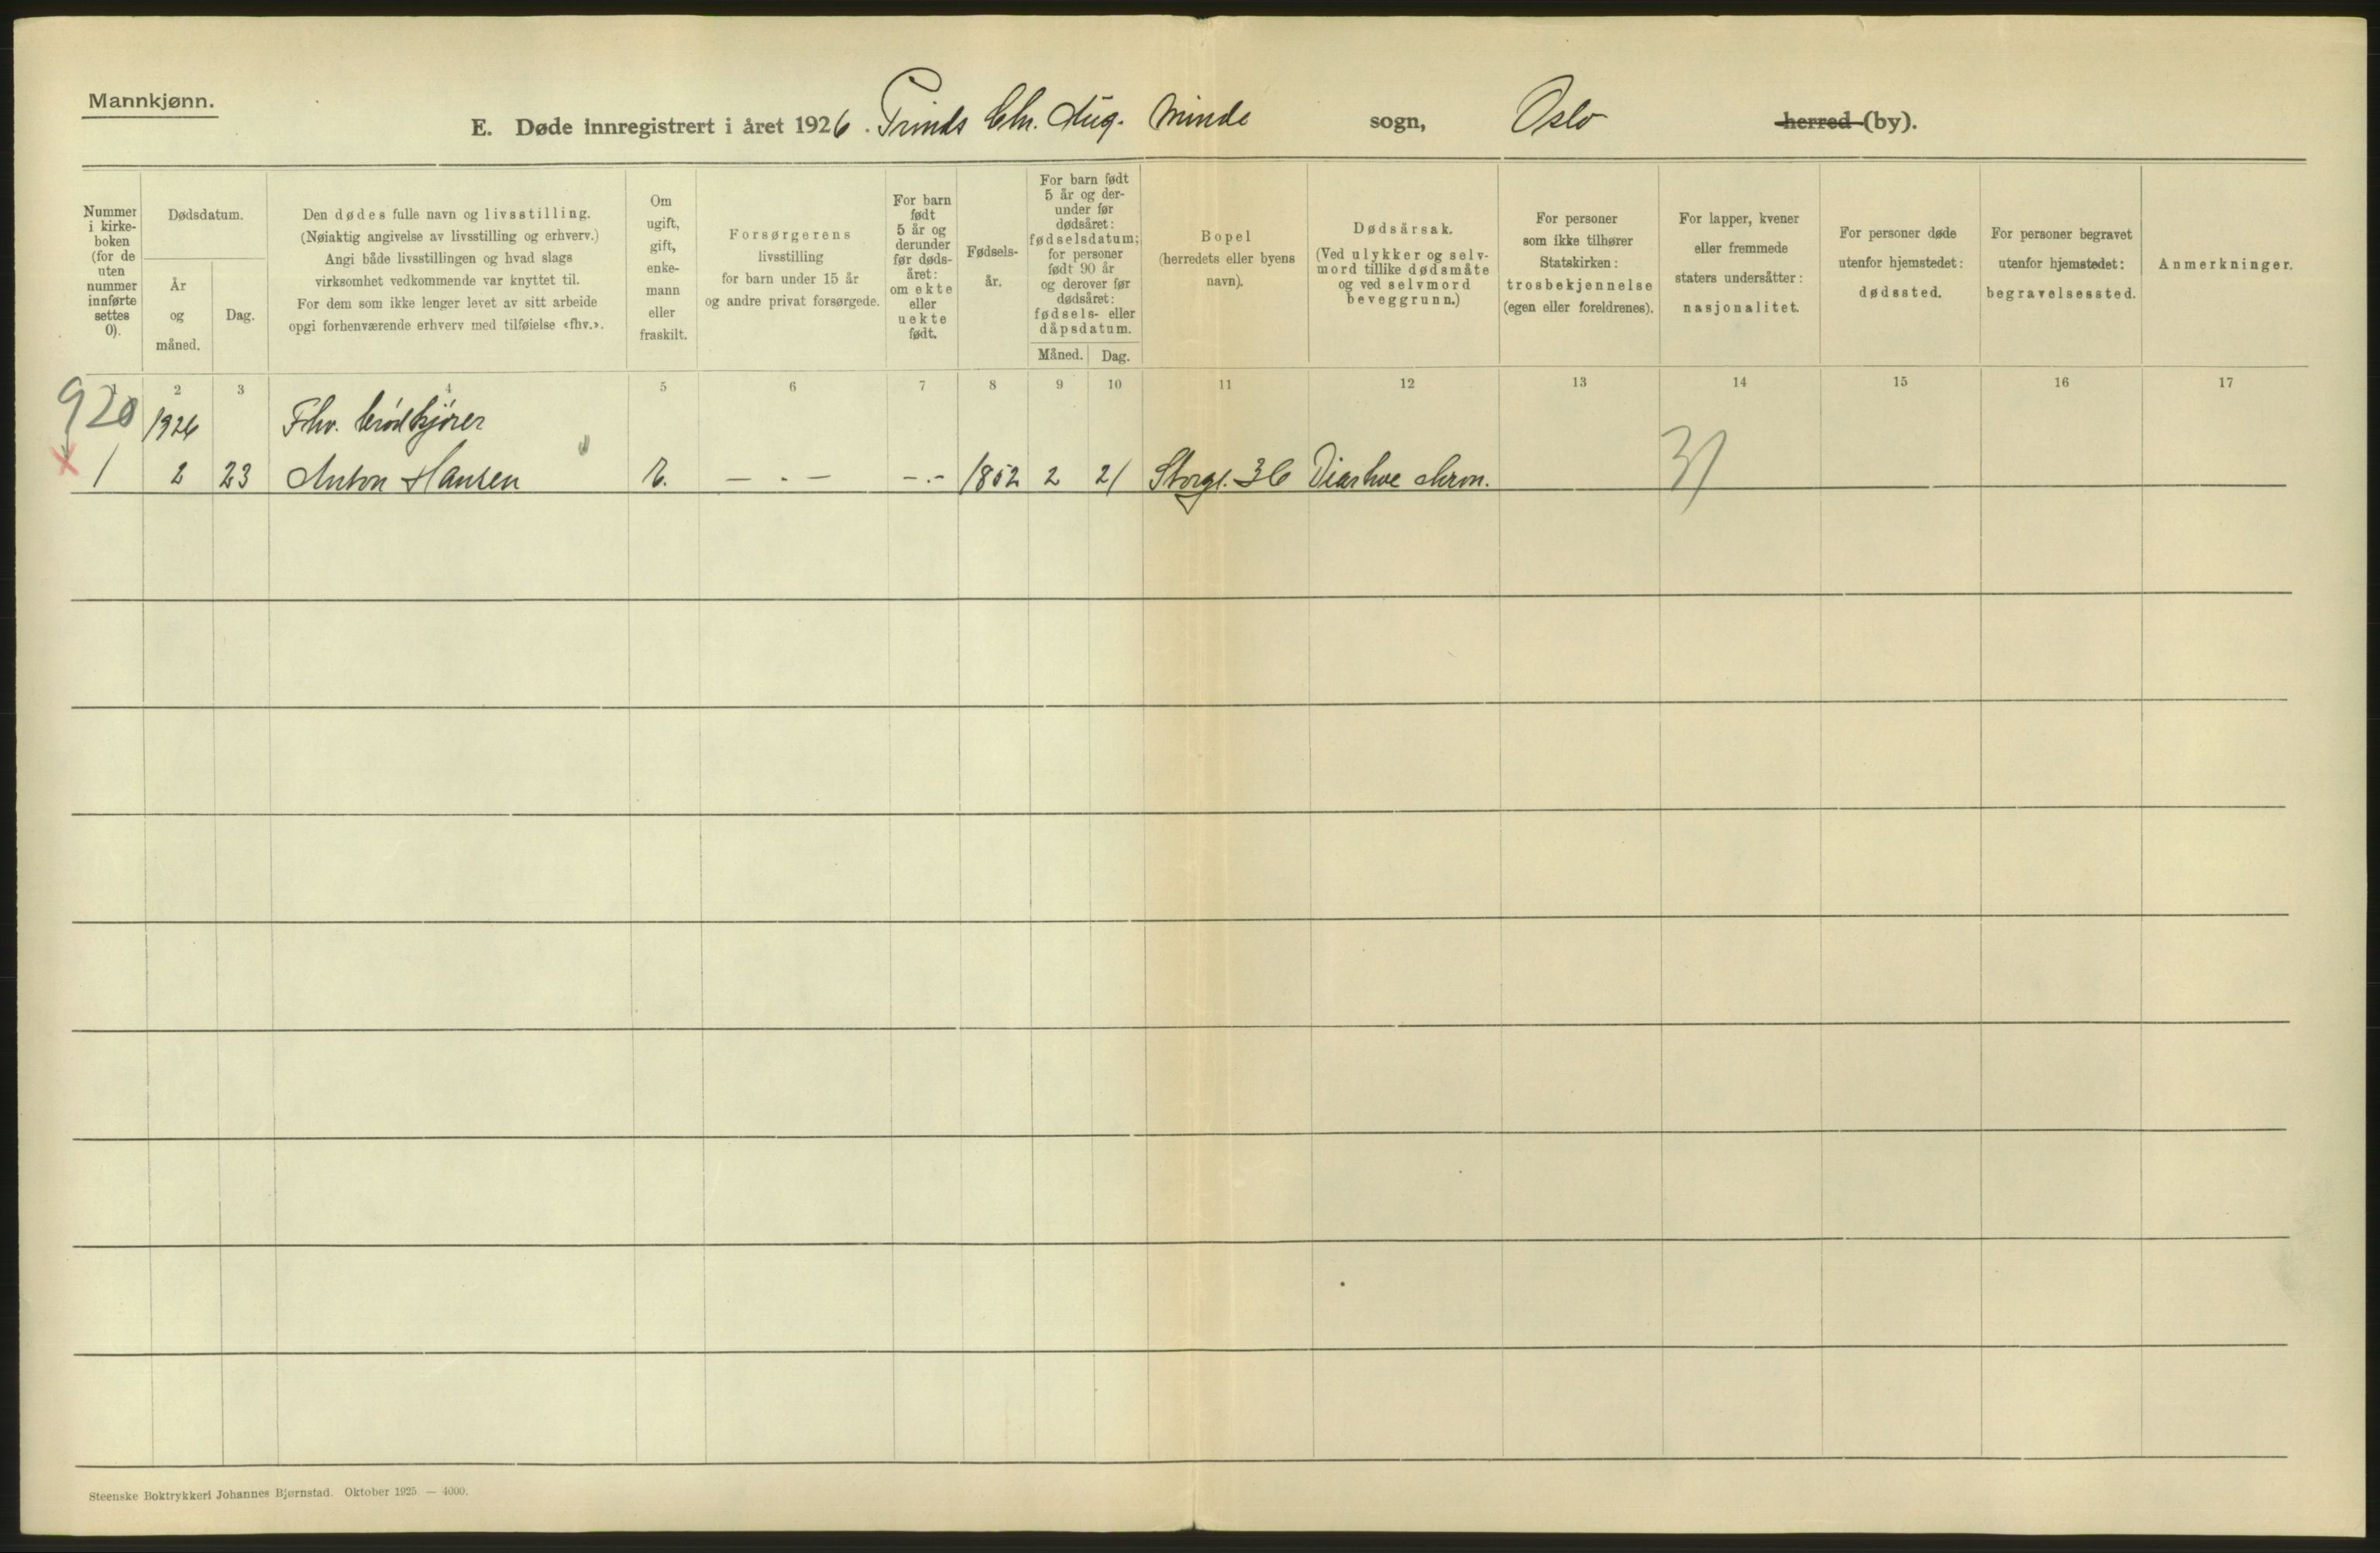 Mannkjønn.
E. Døde innregistrert i året 1926. Prinds Chr. Aug. Minde sogn, Oslo herred (by).
Nummer i kirkeboken (for de uten nummer innførte settes 0).
Dødsdatum.
År og måned.
Dag.
Den dødes fulle navn og livsstilling.
(Nøiaktig angivelse av livsstilling og erhverv.)
Angi både livsstillingen og hvad slags
virksomhet vedkommende var knyttet til.
For dem som ikke lenger levet av sitt arbeide
opgi forhenværende erhverv med tilføielse «fhv.».
Om ugift, gift, enkemann eller fraskilt.
Forsørgerens
livsstilling
for barn under 15 år
og andre privat forsørgede.
For barn født 5 år og derunder før dødsåret: om ekte eller uekte født.
Fødselsår.
For barn født 5 år og derunder før dødsåret: fødselsdatum; for personer født 90 år og derover før dødsåret: fødsels- eller dåpsdatum.
Måned.
Dag.
Bopel
(herredets eller byens
navn).
Dødsårsak.
(Ved ulykker og selvmord tillike dødsmåte og ved selvmord beveggrunn.)
For personer
som ikke tilhører
Statskirken:
trosbekjennelse
(egen eller foreldrenes).
For lapper, kvener
eller fremmede
staters undersåtter:
nasjonalitet.
For personer døde
utenfor hjemstedet:
dødssted.
For personer begravet
utenfor hjemstedet:
begravelsessted.
Anmerkninger.
2 3 4 5 6 7 8 9 10 11 12 13 14 15 16 17
920 1926 Fhv. brødkjører
1 2 23 Anton Hansen — . — — . — 1852 2 21 Storgt. 36 Diarhoe chron. 31
Steenske Boktrykkeri Johannes Bjørnstad. Oktober 1925. — 4000.